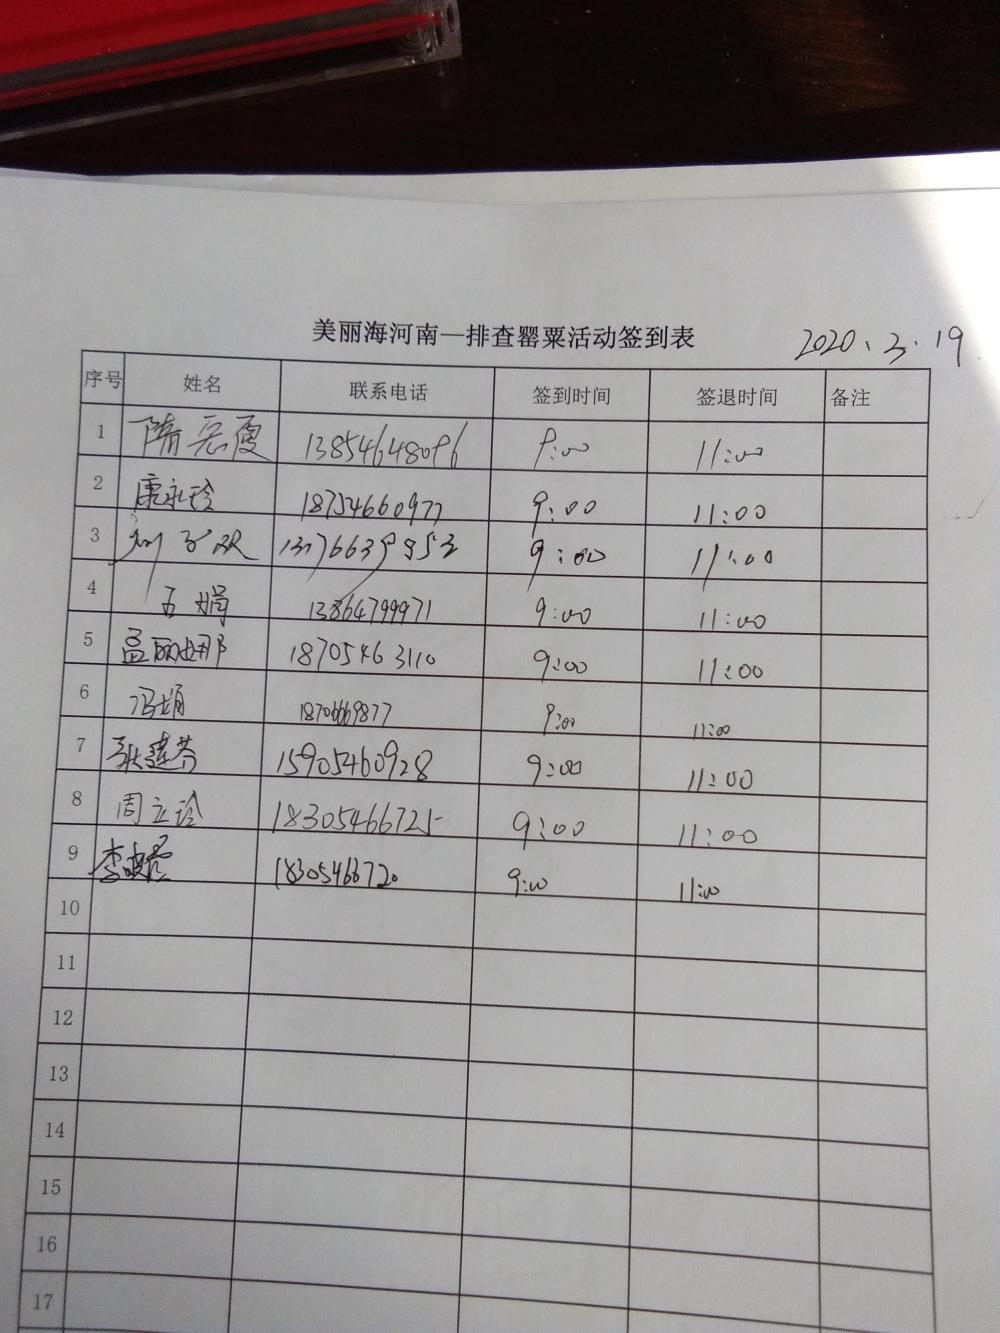 美丽海河南—排查罂粟活动签到表 2020.3.19
序号 姓名 联系电话 签到时间 签退时间 备注
1 隋 霞 13854648096 9:00 11:00
2 康永玲 18754660977 9:00 11:00
3 刘 双 9:00 11:00
4 王娟 13864799971 9:00 11:00
5 孟丽娜 18705463110 9:00 11:00
6 冯娟 18706669877 9:00 11:00
7 耿建芬 15905460928 9:00 11:00
8 周立玲 18305466725 9:00 11:00
9 李 霞 18305466720 9:00 11:00
10
11
12
13
14
15
16
17